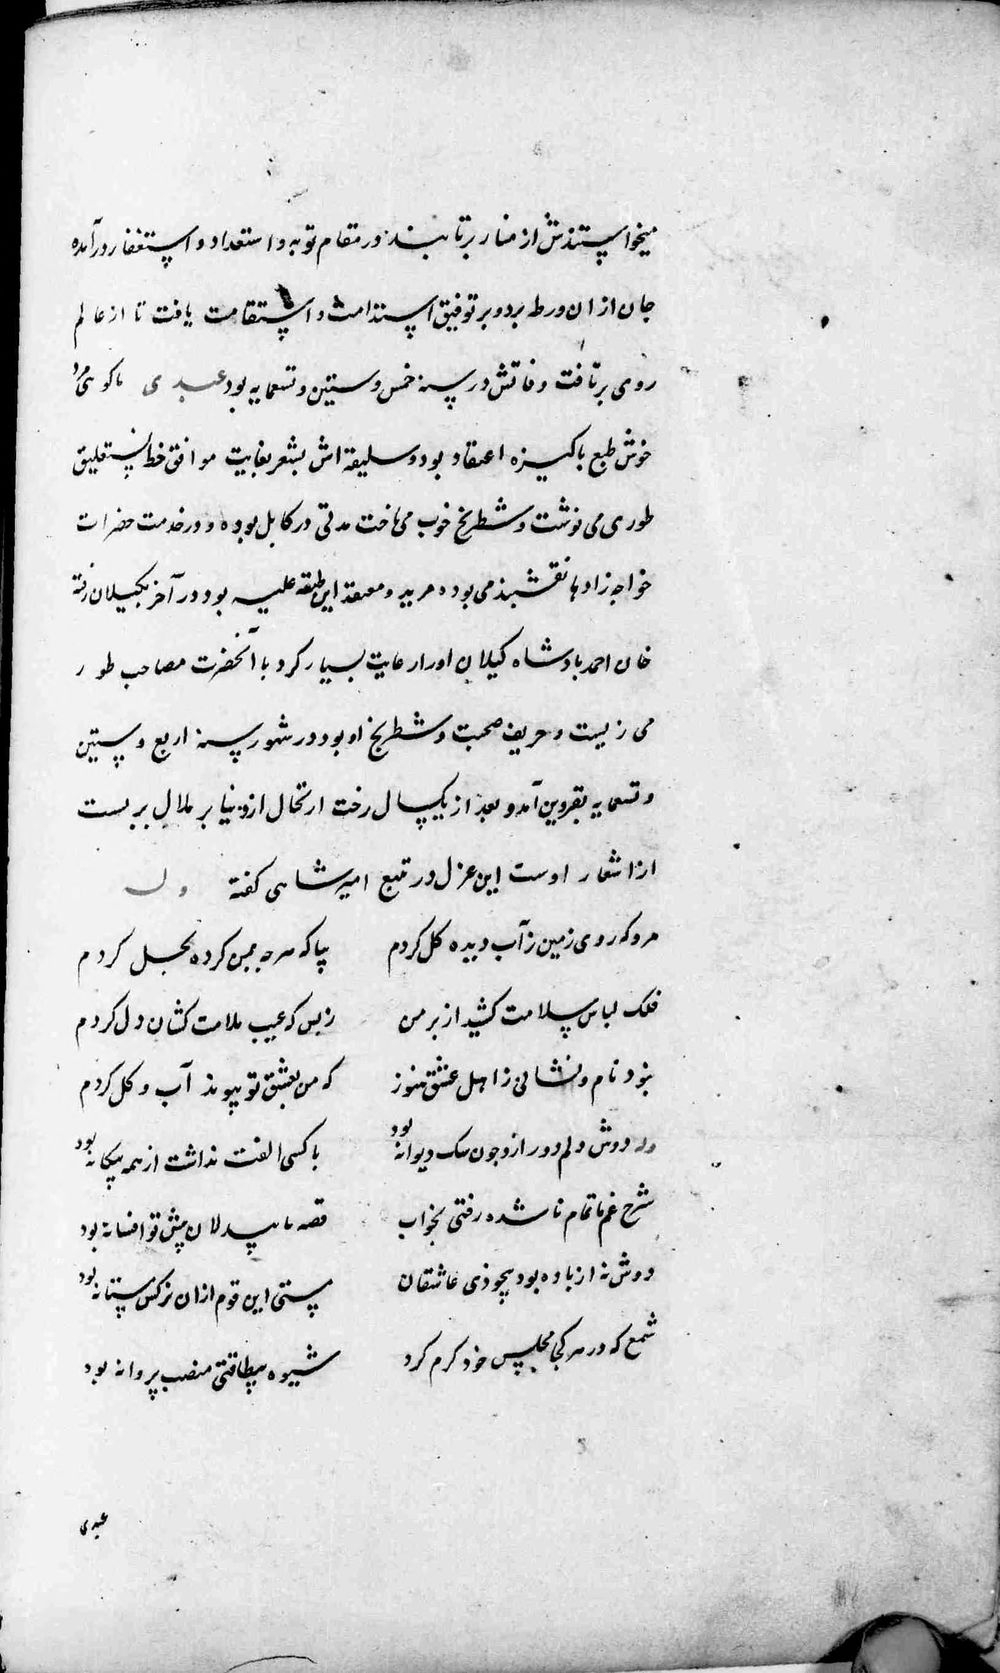 میخواستندش از منار برتابند در مقام توبه و استعداد و استغفار درآمده
جان از ان ورطه برد و بر توفیق استدامت و استقامت یافت تا از عالم
روی برتافت وفاتش در سنه خمس و ستین و تسعمایه بود عبدی ماکوهی مرد
خوش طبع باکیزه اعتقاد بود و سلیقه اش بشعر بغایت موافق خط نستعلیق
طوری می نوشت و شطرنج خوب می باخت مدتی در کابل بوده و در خدمت حضرات
خواجه زادها نقشبندی بوده مرید و معتقد این طبقه علیه بود در آخر بکیلان رفته
خان احمد بادشاه کیلان او را رعایت بسیار کرد با آنحضرت مصاحب طور
می زیست و حریف صحبت و شطرنج او بود در شهور سنه اربع و ستین
و تسعمایه بقزوین آمد و بعد از یکسال رخت ارتحال از دنیا بر ملال بربست
از اشعار اوست این غزل در تتبع امیر شاهی کفته وله
مرو که روی زمین ز آب دیده کل کردم بیا که هرچه بمن کرده بحل کردم
فلک لباس سلامت کشید از بر من زبس که عیب ملامت کشان دل کردم
نبود نام و نشانی ز اهل عشق هنوز که من بعشق تو پیوند آب و کل کردم
وله دوش دلم دور ازو جون سک دیوانه بود با کسی الفت نداشت از همه بیکانه بود
شرح غم ناتمام نا شده رفتی بخواب قصه ما بیدلان پیش تو افسانه بود
دوش نه از باده بود بیخودی عاشقان مستی این قوم ازان نرکس مستانه بود
شمع که در هر کجا مجلس خود کرم کرد شیوه بیطاقتی منصب پروانه بود
عبدی